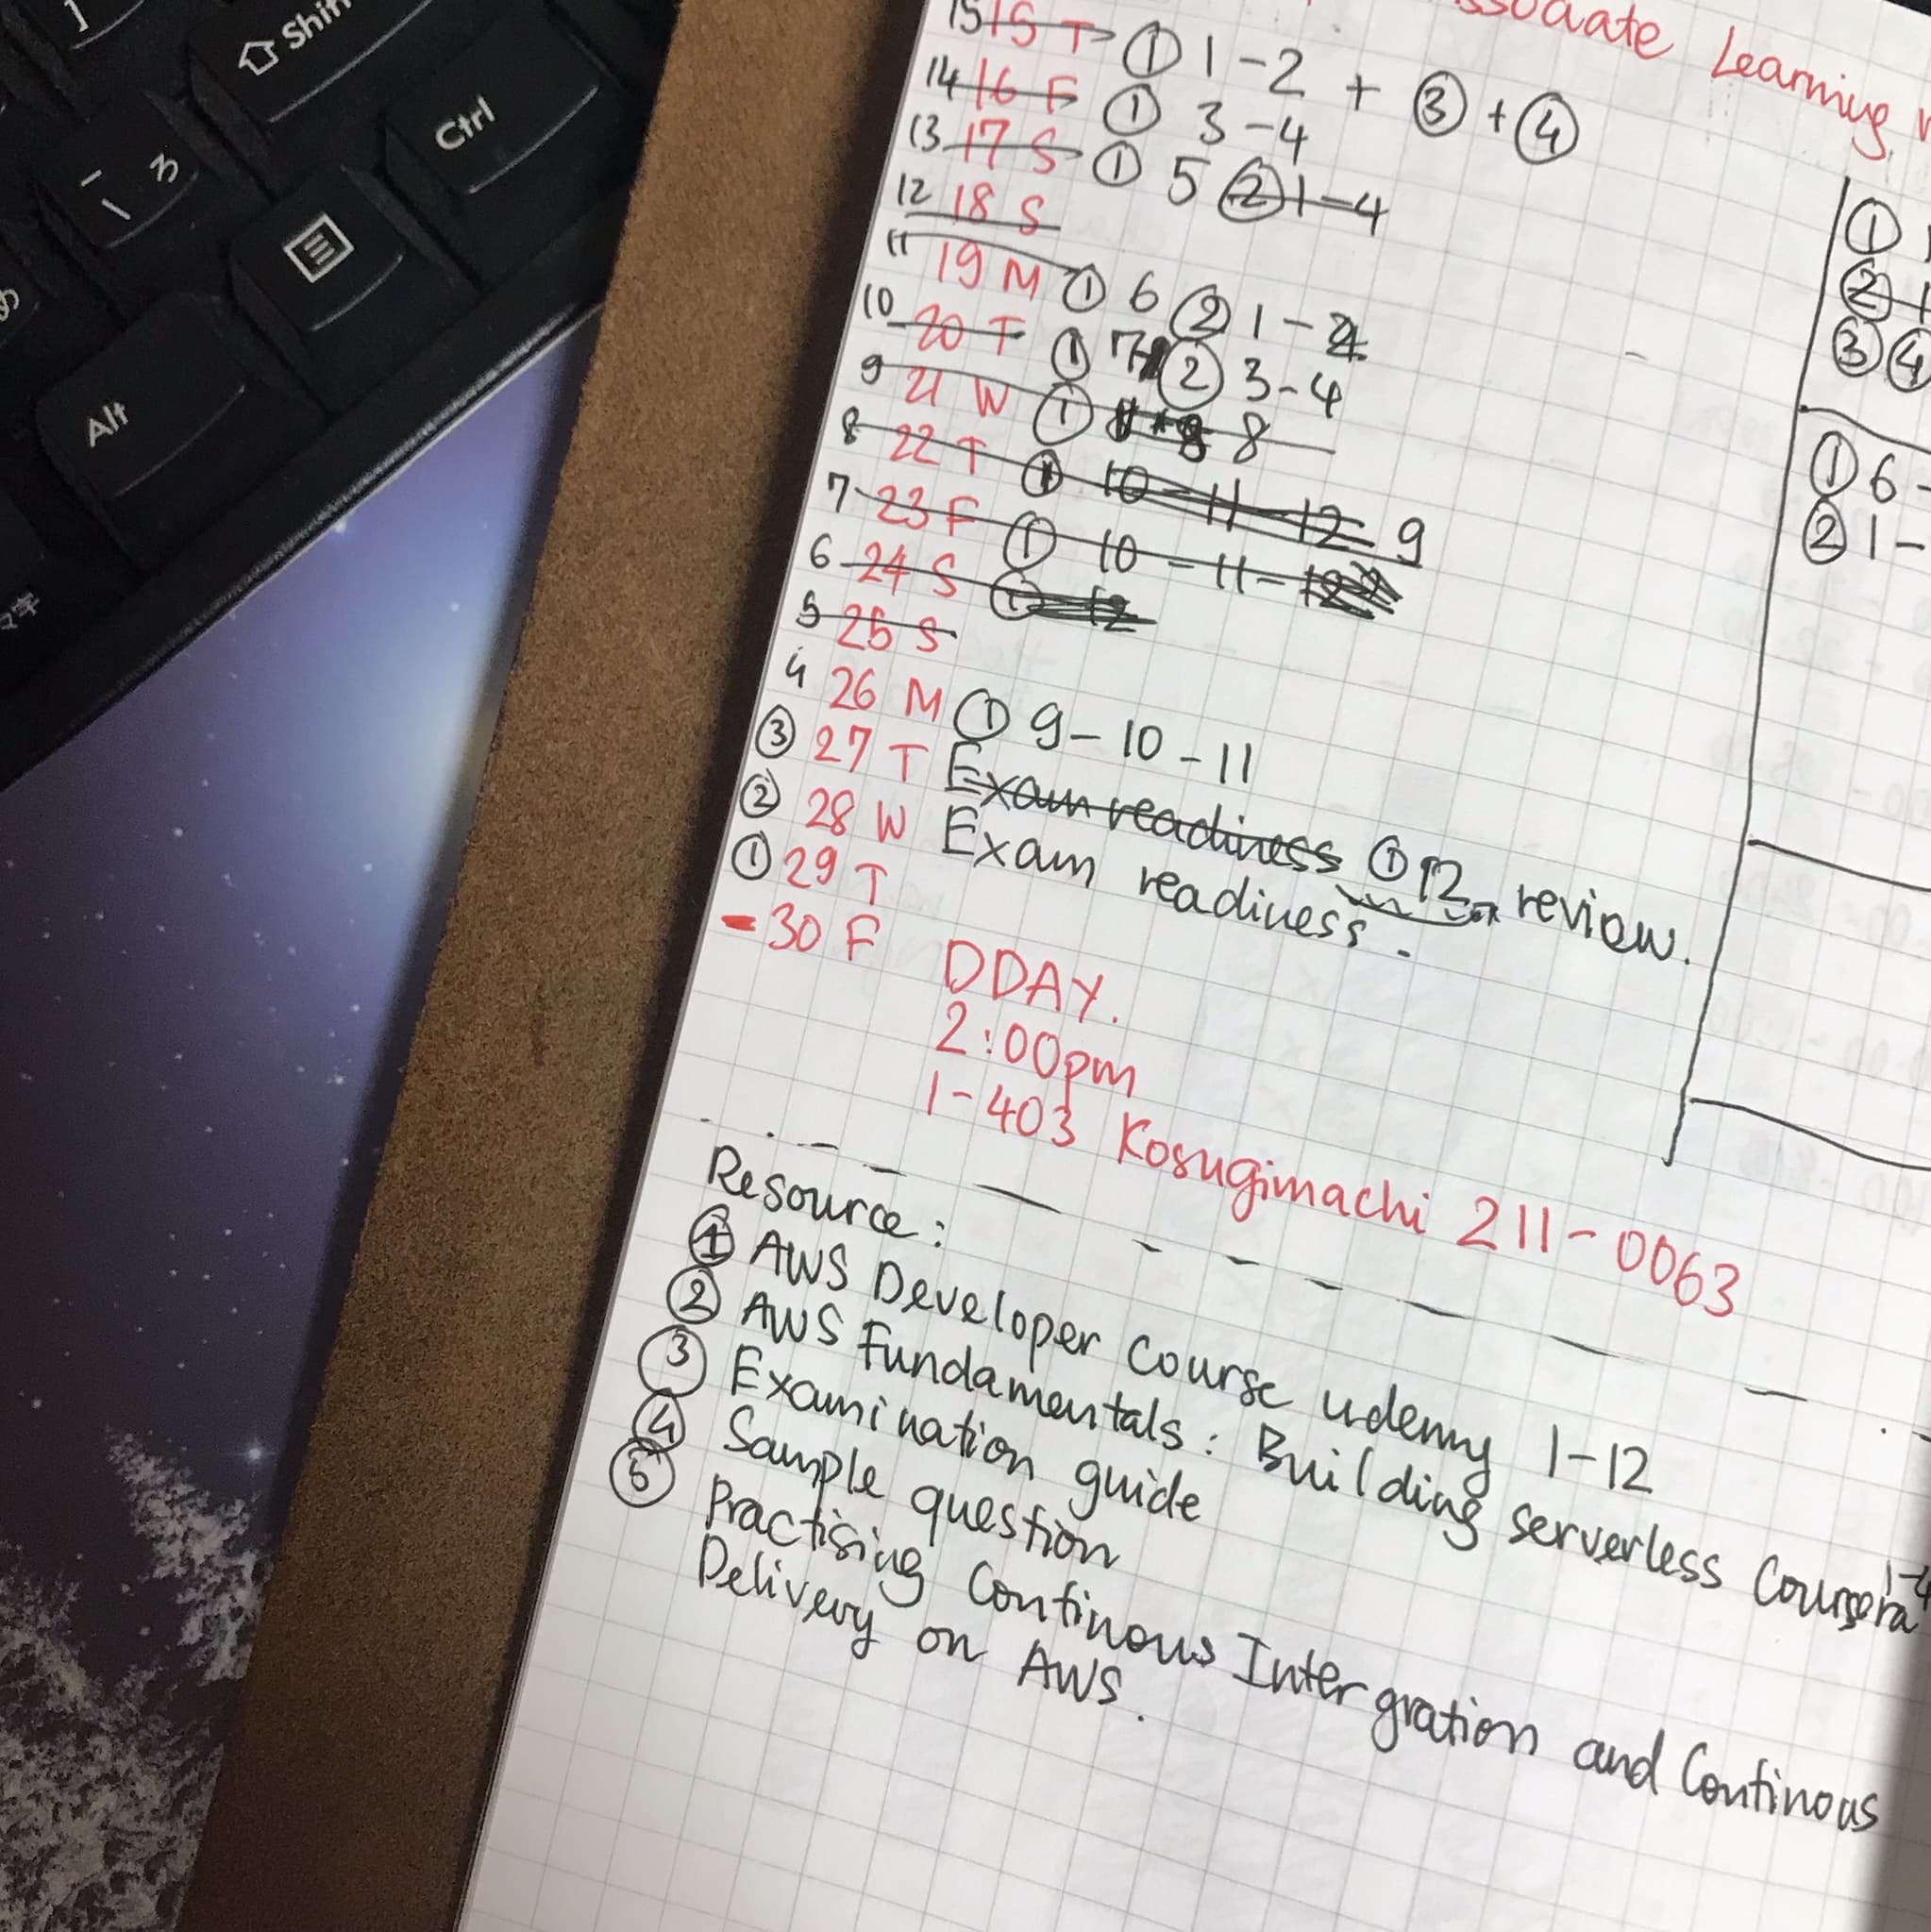 Shift
Ctrl
ろ
Alt
Learning
15 15 T ① 1-2 + ③ + ④
14 16 F ① 3-4
13 17 S ① 5 ② 1-4
12 18 S
11 19 M ① 6 ② 1-2
10 20 T ① 7 ② 3-4
9 21 W ① 8
8 22 T ① 10-11-12 9
7 23 F ① 10-11-12
6 24 S ① 12
5 25 S
4 26 M ① 9-10-11
③ 27 T Exam readiness ① 12 review.
② 28 W Exam readiness.
① 29 T
-30 F DDAY.
2:00pm
1-403 Kosugimachi 211-0063
Resource:
① AWS Developer Course udemy 1-12
② AWS Fundamentals: Building serverless Coursera 1-4
③ Examination guide
④ Sample question
⑤ Practising Continous Intergration and Continous
Delivery on AWS.
①
②
③④
① 6-
② 1-